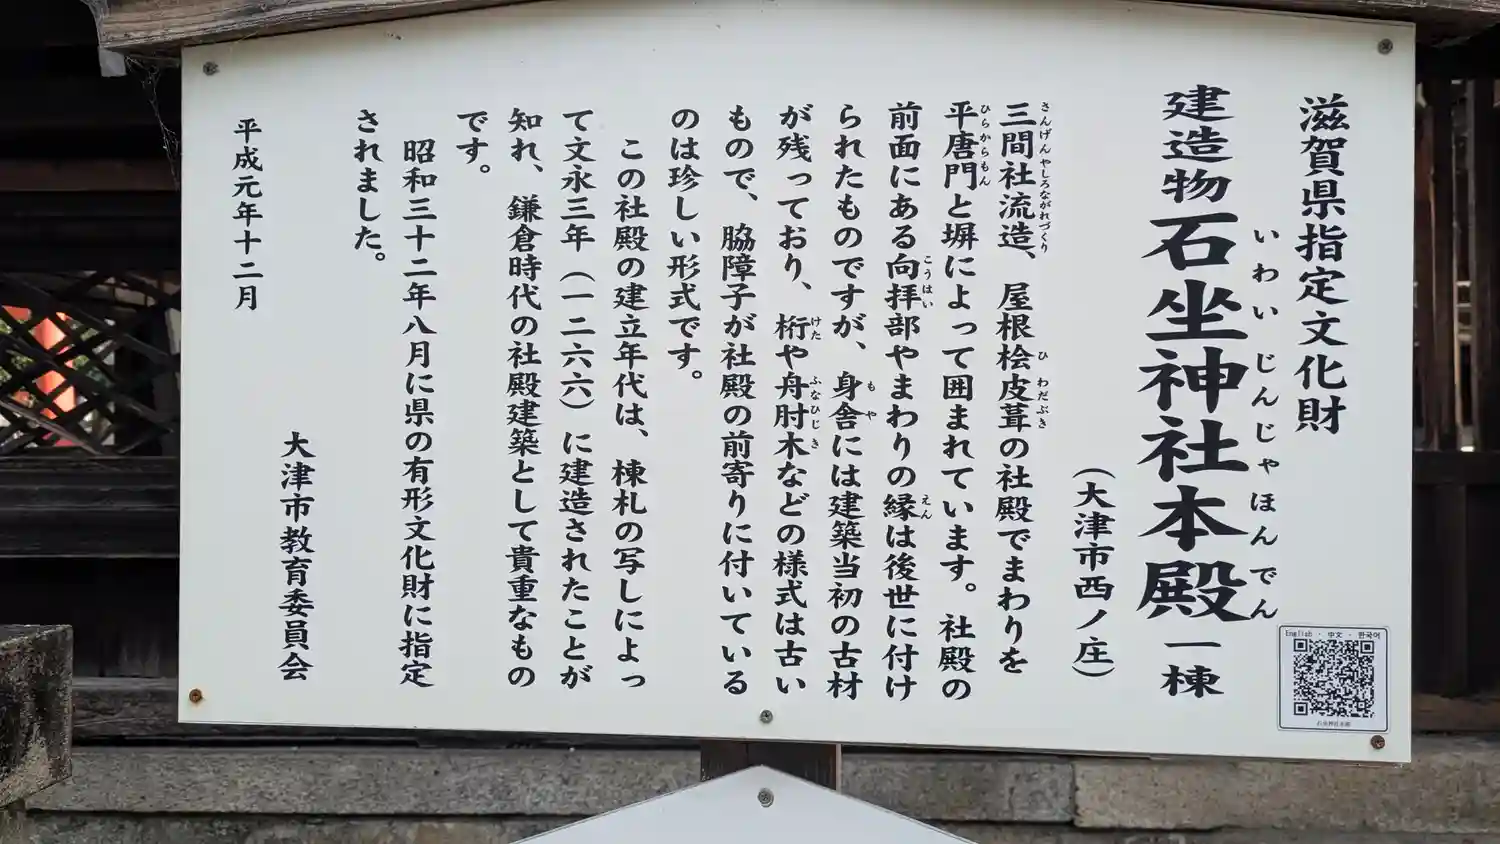 滋賀県指定文化財
建造物石坐神社本殿一棟
いわい じんじゃほんでん
(大津市西ノ庄)
三間社流造、屋根桧皮葺の社殿でまわりを
さんげんやしろながれづくり ひ わだぶき
平唐門と塀によって囲まれています。社殿の
ひらからもん
前面にある向拝部やまわりの縁は後世に付け
こうはい えん
られたものですが、身舎には建築当初の古材
もや
が残っており、桁や舟肘木などの様式は古い
けた ふなひじき
もので、脇障子が社殿の前寄りに付いている
のは珍しい形式です。
この社殿の建立年代は、棟札の写しによっ
て文永三年(一二六六)に建造されたことが
知れ、鎌倉時代の社殿建築として貴重なもの
です。
昭和三十二年八月に県の有形文化財に指定
されました。
平成元年十二月
大津市教育委員会
English ・ 中文 ・ 한국어
石坐神社本殿